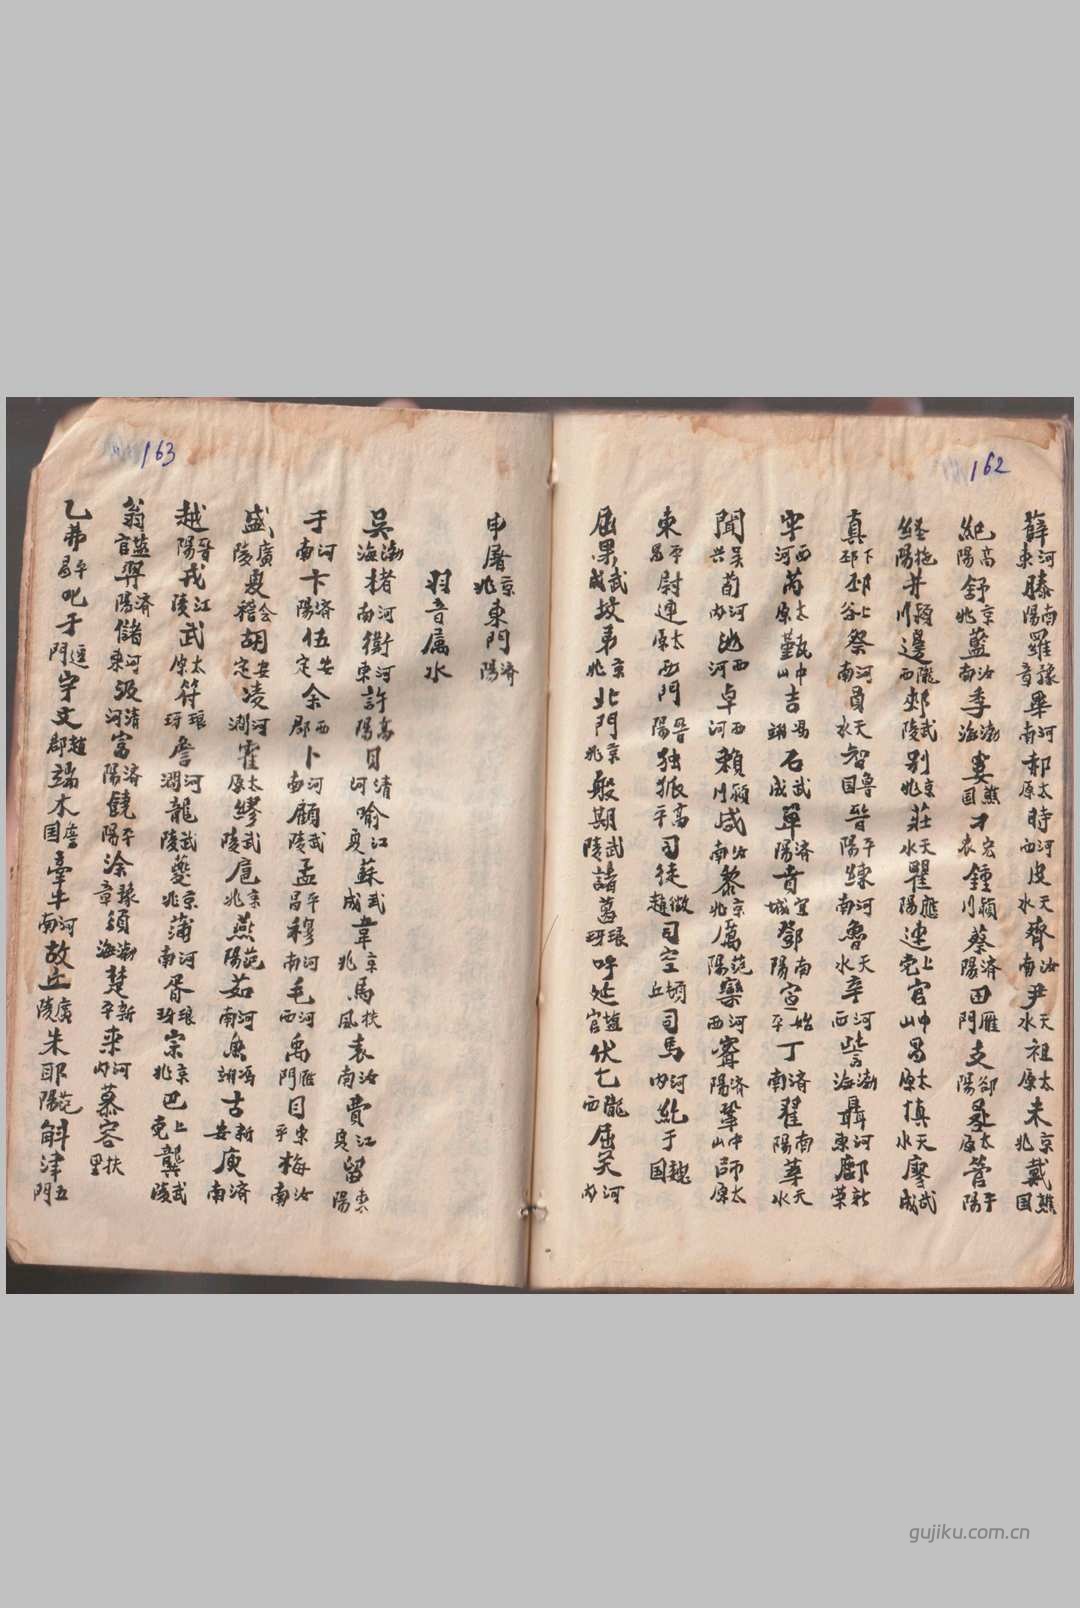 162
薛河東滕南陽羅豫章畢河南郝太原時河西皮天水齊汝南尹天水祖太原朱京兆戴熊国
紀高陽舒京兆藍汝南季渤海婁熊国刁宏衣鍾潁川蔡済陽田雁門支郃陽太原管平陽
陽井潁川邊隴西郟武陵別京兆莊天水瞿雁陽逯上党官中山昌太原慎天水廖武成
真下邳邳上谷祭河南員天水智魯国晉平陽練河南魯天水辛河西訾渤海聶河東鄺新荣
宇西河芮太原甄中山吉馮翊石武成單済陽育宜城鄧南陽宣始平丁済南翟南陽莘天水
聞吴兴荀河内池西河卓西河賴潁川咸汝南黎京兆厲范陽欒河西甯済陽鞏中山師太原
東平昌尉連太原西門晉陽独狐高平司徒徵趙司空頓丘司馬河内紇于魏国
屈男武成坟弟京兆北門京兆般期武陵諸葛琅玡呼延塩官伏乞隴西屈突河内
163
申屠京兆東門済陽
羽音属水
吳渤海褚河南衛河東許高陽貝清河喻江夏蘇武成韋京兆馬扶風袁汝南費江夏留陽
于河南卞済陽伍安定余西郡卜河南顧武陵孟平昌穆河南毛河西禹雁門目東平梅汝南
盛廣陵夏会稽胡安定凌河澗霍太原繆武陵扈京兆燕范陽茹河南魚馮翊古新安庾済南
越晉陽戎江陵武太原符琅玡詹河澗龍武陵夔京兆蒲河南胥琅玡宗京兆巴上党龔武陵
翁塩官羿済陽儲河東汲清河富済陽饒平陽涂豫章須渤海楚新平来河内慕容扶里
乙弗平昌叱于逗門宇文趙郡端木魯国牽牛河南故丘廣陵朱耶范陽斛津五門
gujiku.com.cn